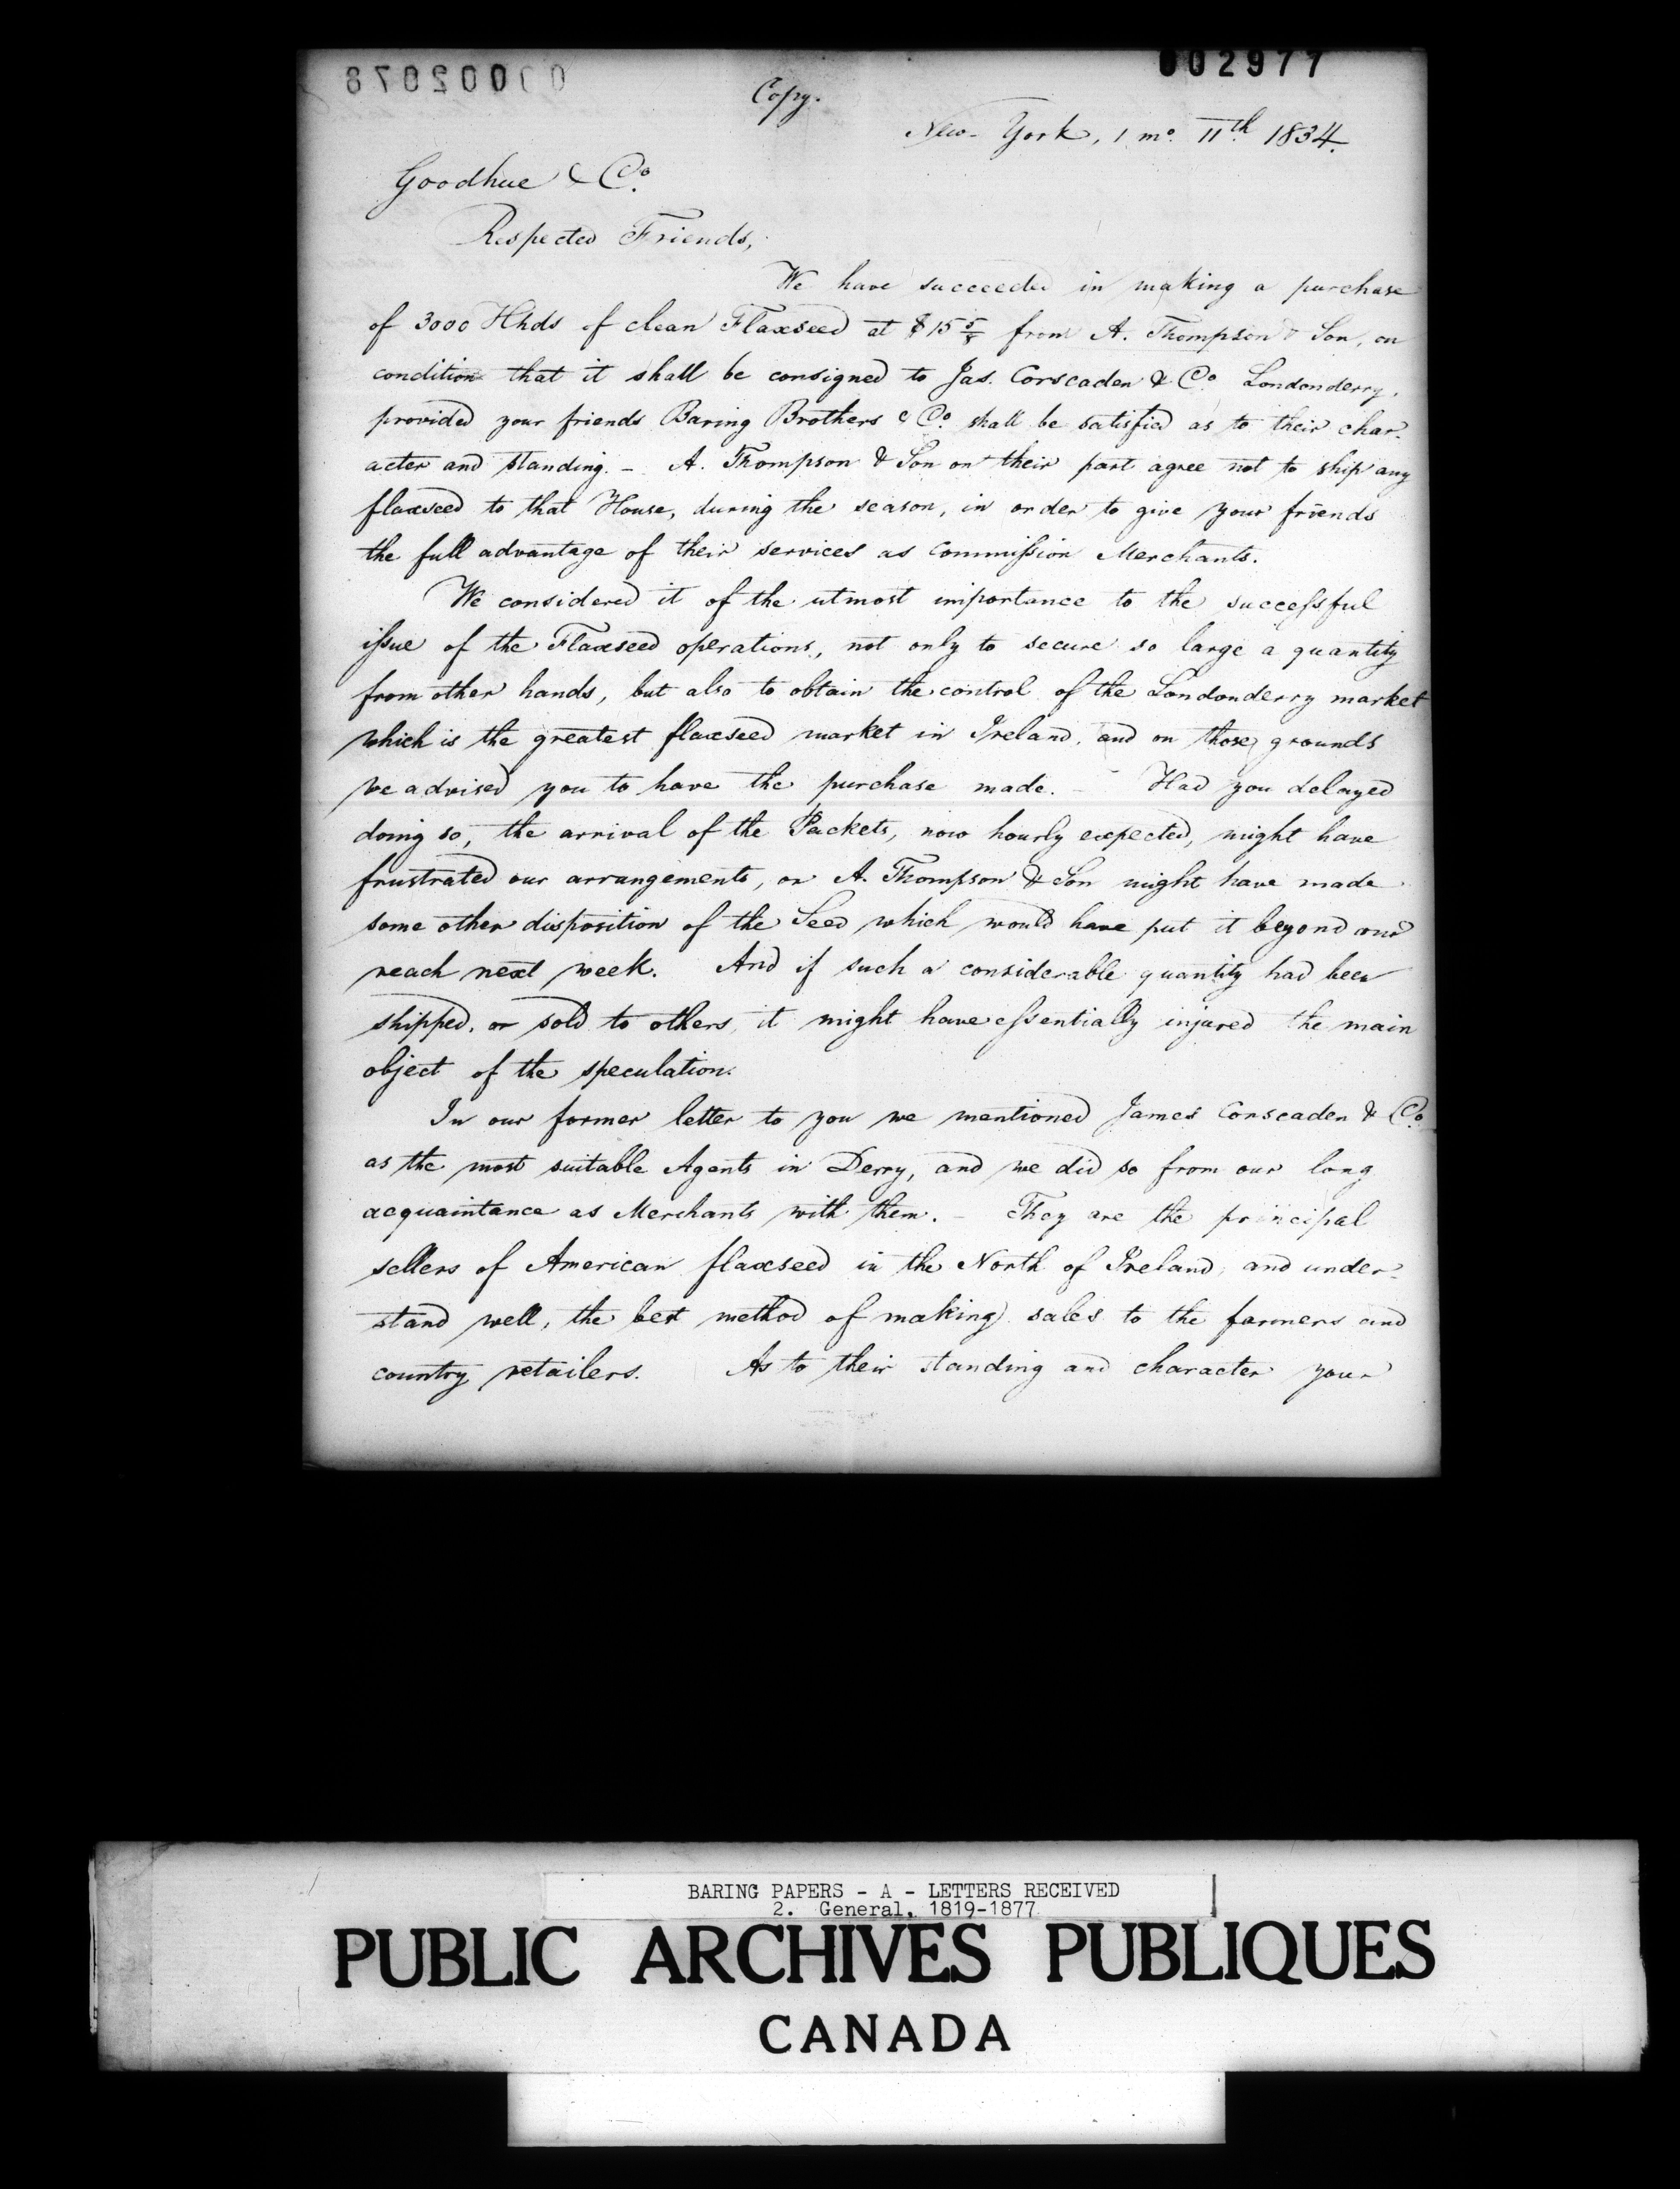 002977
00002078
Copy.
New-York, 1 mo. 11th 1834.
Goodhue & Co.
Respected Friends,
We have succeeded in making a purchase
of 3000 Hhds of clean Flaxseed at $15 5/8 from A. Thompson & Son, on
condition that it shall be consigned to Jas. Corscaden & Co. Londonderry,
provided your friends Baring Brothers & Co. shall be satisfied as to their char-
acter and standing. - A. Thompson & Son on their part agree not to ship any
flaxseed to that House, during the season, in order to give your friends
the full advantage of their services as Commission Merchants.
We considered it of the utmost importance to the successful
issue of the Flaxseed operations, not only to secure so large a quantity
from other hands, but also to obtain the control of the Londonderry market
which is the greatest flaxseed market in Ireland, and on those grounds
we advised you to have the purchase made. - Had you delayed
doing so, the arrival of the Packets, now hourly expected, might have
frustrated our arrangements, or A. Thompson & Son might have made
some other disposition of the Seed which would have put it beyond our
reach next week. And if such a considerable quantity had been
shipped, or sold to others, it might have essentially injured the main
object of the speculation.
In our former letter to you we mentioned James Corscaden & Co.
as the most suitable Agents in Derry, and we did so from our long
acquaintance as Merchants with them. - They are the principal
sellers of American flaxseed in the North of Ireland, and under-
stand well, the best method of making sales to the farmers and
country retailers. As to their standing and character your
BARING PAPERS - A - LETTERS RECEIVED
2. General, 1819-1877
PUBLIC ARCHIVES PUBLIQUES
CANADA